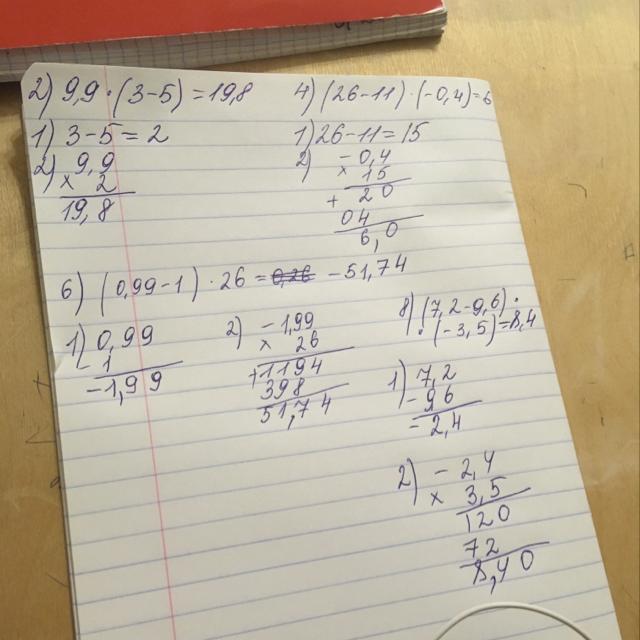 2) 9,9 · (3-5) = 19,8
1) 3-5 = 2
2) 9,9
× 2
19,8
4) (26-11) · (-0,4) = 6
1) 26-11 = 15
2) -0,4
× 15
+ 20
04
6,0
6) (0,99-1) · 26 = 0,26 -51,74
1) 0,99
- 1
-1,99
2) -1,99
× 26
+1194
398
51,74
8) (7,2-9,6) ·
· (-3,5) = 8,4
1) 7,2
- 96
- 2,4
2) - 2,4
× 3,5
120
72
8,40